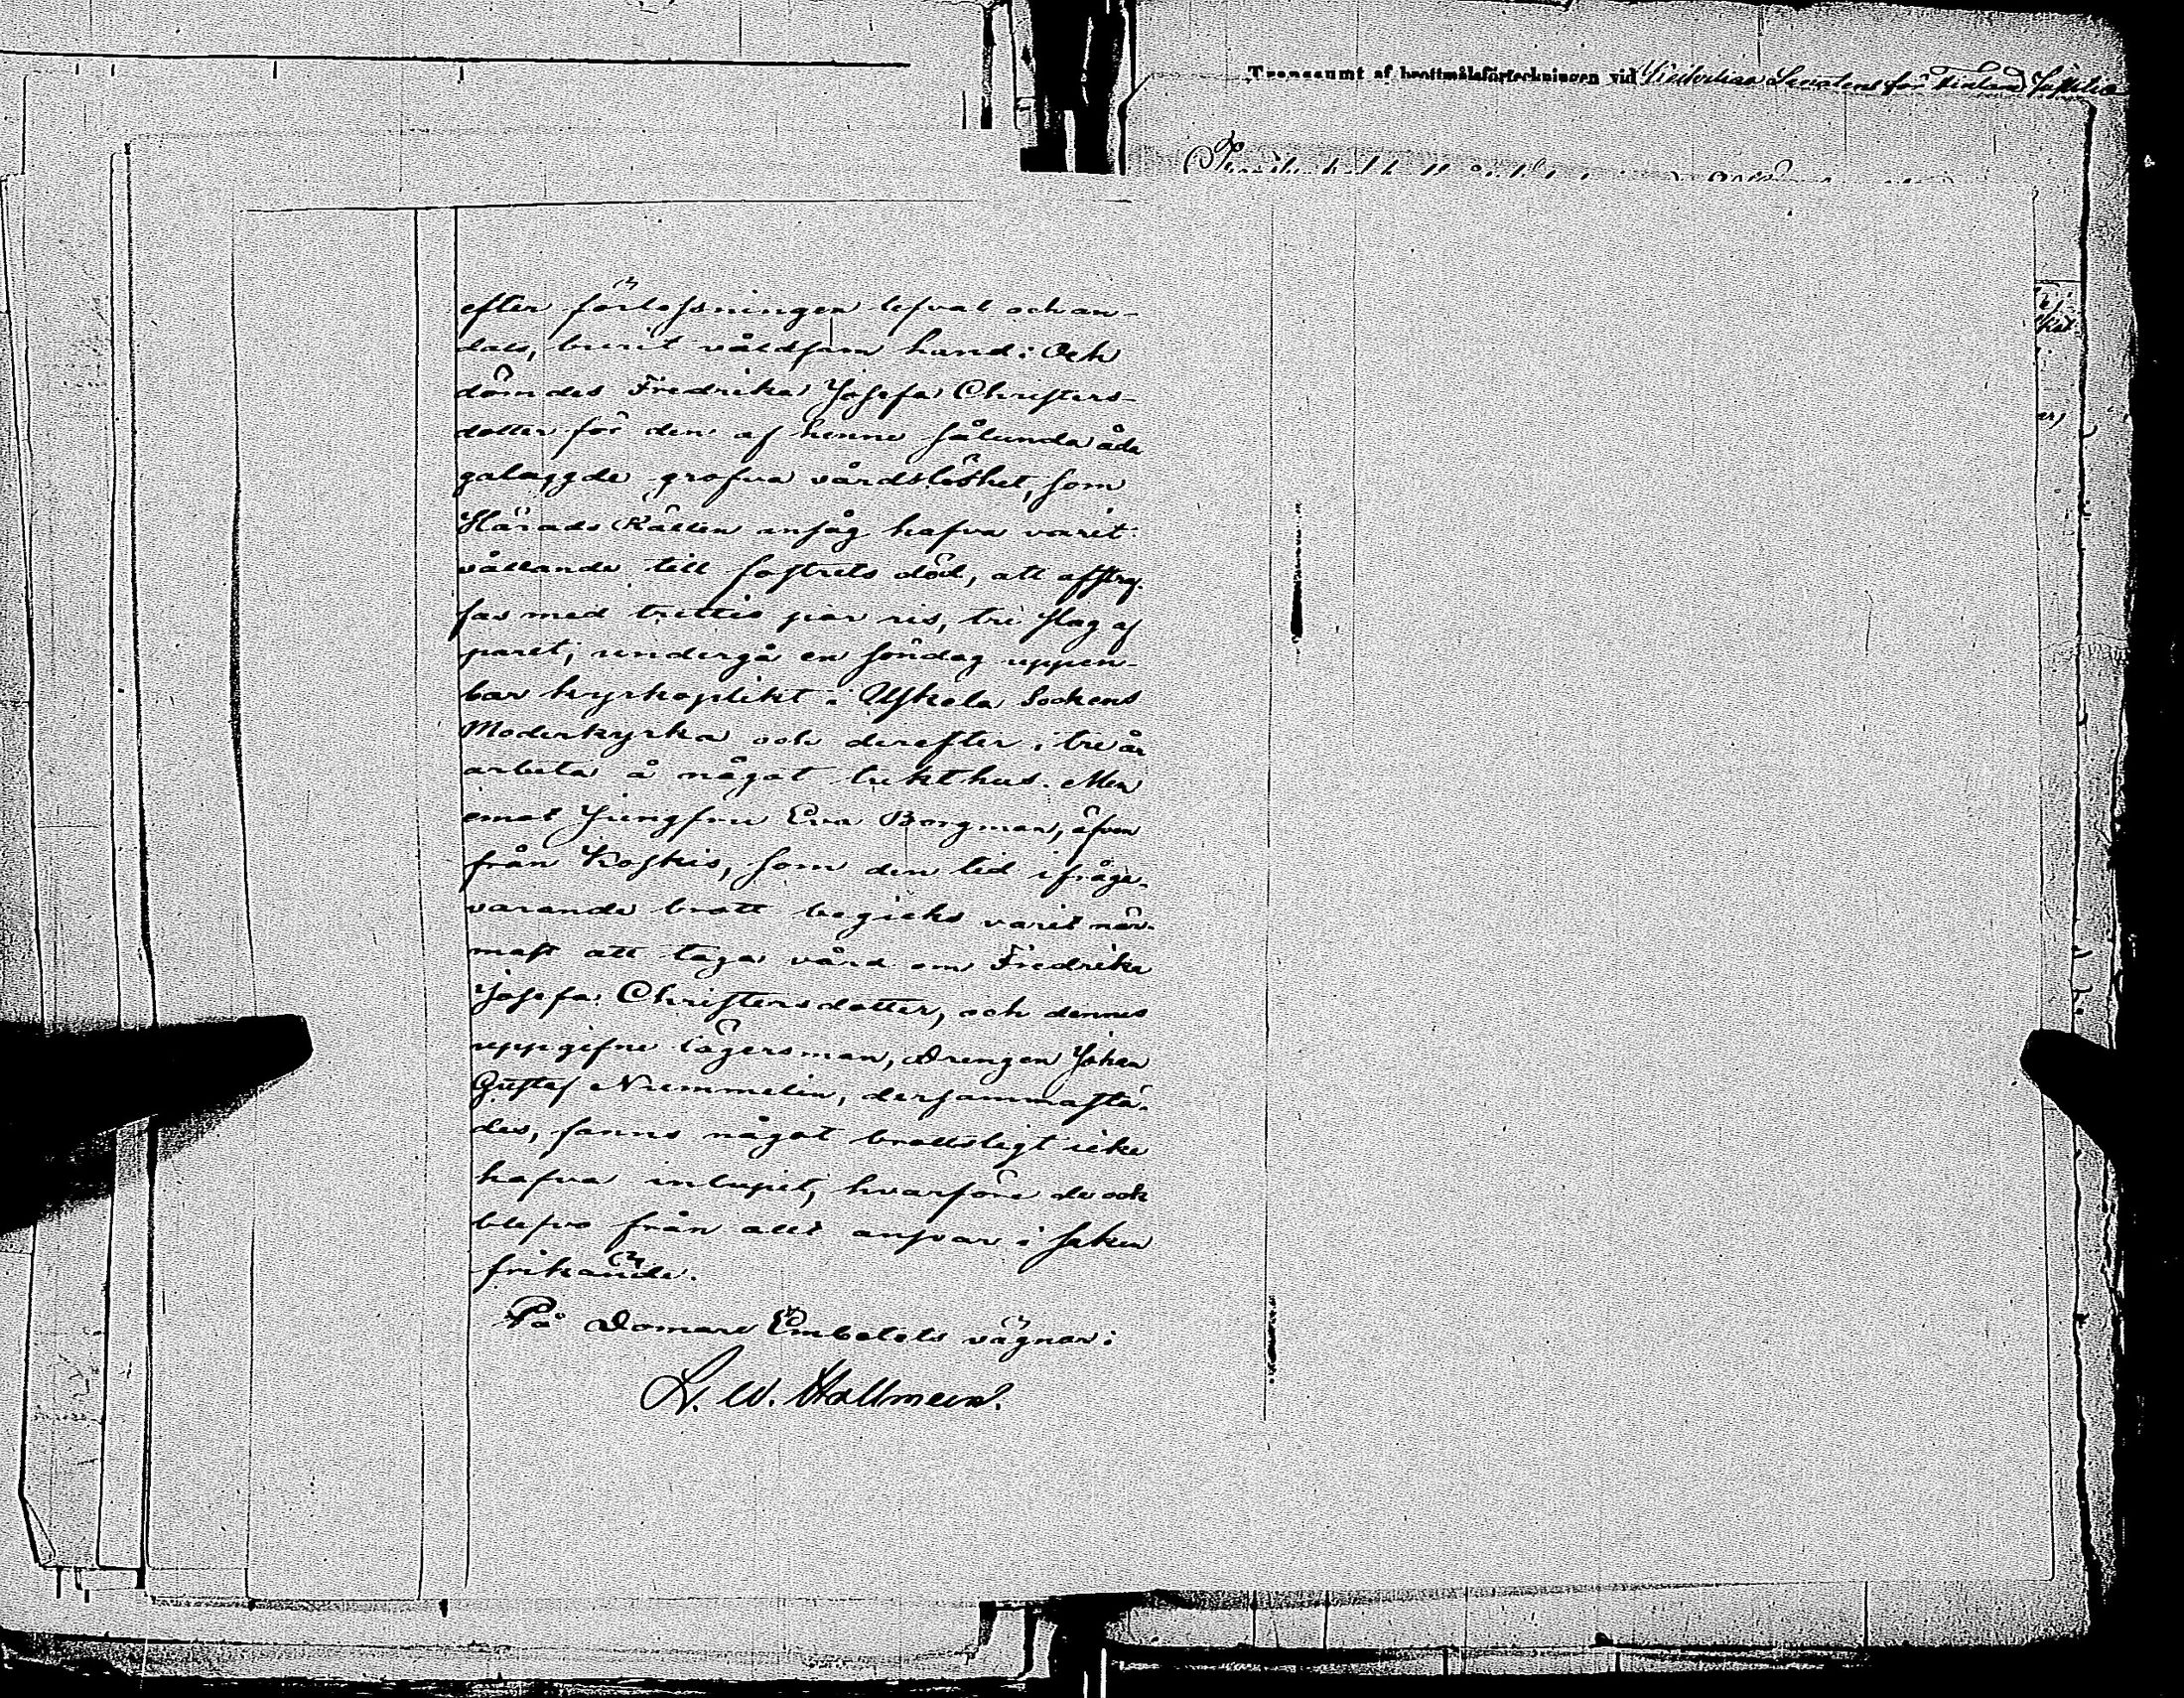 Transsumt af brottmålsförteckningen vid Keiserliga Senatens för Finland Justitie
efter förlossningen lefvat och an-
dats, burit våldsam hand: Och
dömdes Fredrika Josefa Christers-
dotter för den af henne sålunda åda
galaggde grofva vårdslöshet, som
Härads Rätten ansåg hafva varit
vållande till fostrets död, att afstraf-
fas med trettio par ris, tre slag af
paret, undergå en söndag uppen-
bar kyrkoplikt i Uskela Sockens
Moderkyrka och derefter i tre år
arbeta å något tukthus. Men
emot Jungfru Eva Borgman, äfven
från Koskis, som den tid ifråga-
varande brott begicks varit när-
mast att taga vård om Fredrika
Josefa Christersdotter, och dennes
uppgifne lägersman, Drengen Johan
Gustaf Nummelin, dersammastä-
des, fanns något brottsligt icke
hafva inlupit, hvarföre de ock
blefvo från allt ansvar i saken
frikände.
På Domare Embetets vägnar: